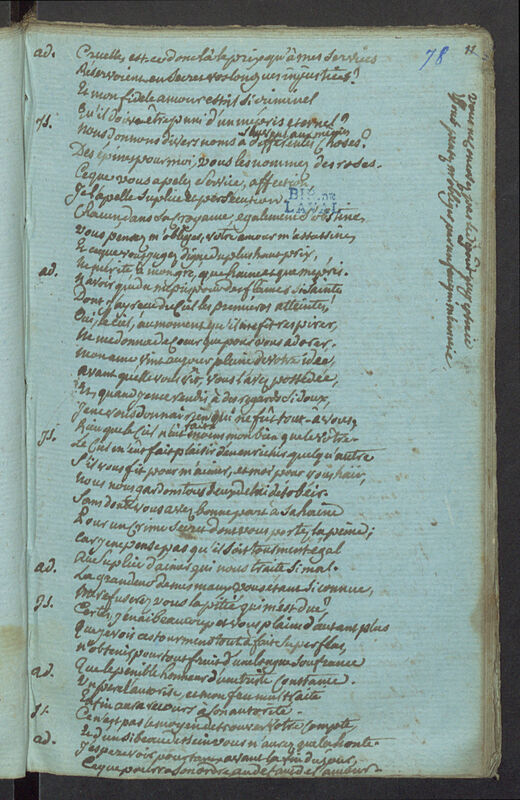 78
ad. Cruelle, est-ce donc là le prix qu'à mes services
Réservoient en secret vos longues injustices?
Et mon fidele amour est il si criminel
Qu'il doive etre puni d'un mepris eternel?
Js. Nous donnons divers noms à differentes choses?
souvent aux mêmes
Des épines pour moi, vous les nommez des roses.
Ce que vous apelez service, affection,
Je l'apelle suplice et persecution.
BIB. DE LAVAL
Chacun dans sa croyance également s'obstine,
Vous pensez m'obliger, votre amour m'assassine,
Et ce que vous jugez digne du plus haut prix,
Ne merite à mon gré, que haine et que mepris.
ad. N'avoir que du mepris pour des flames si saintes
Dont j'ay reçu du Ciel les premieres atteintes!
Oui, le Ciel, au moment qu'il me fit respirer,
Ne me donna de coeur que pour vous adorer.
Mon ame vint au jour pleine de votre idée,
avant que de vous voir, vous l'avez possedée,
Et, quand je me rendis à des regards si doux,
Je ne vous donnai rien qui ne fût tout à vous,
Rien que le Ciel n'eût fait mon bien que le votre.
Js. Le Ciel m'eut fait plaisir d'en enrichir quelqu'autre
S'il vous fit pour m'aimer, et moi pour vous haïr,
Nous nous gardons tous deux de lui desobéir.
Sans doute vous avez bonne part à sa haine
Pour un crime secret dont vous portez la peine;
Car je ne pense pas qu'il soit tourment égal
Au suplice d'aimer qui nous traite si mal.
ad. La grandeur de mes maux vous étant si connue,
Me refuserez vous la pitié qui m'est due?
Js. Certes j'en ai beaucoup et vous plains d'autant plus
Que je vois ces tourments tout à fait superflus,
n'obtenir pour tout fruit d'une longue soufrance
Que le penible honneur d'une triste constance.
ad. Un pere l'autorise, et mon feu mal traité
Enfin aura recours à son autorité.
Js. Ce n'est pas le moyen de trouver votre compte,
Et d'un si beau dessein vous n'aurez que la honte.
ad. J'espere voir pourtant avant la fin du jour,
Ce que pourra son ordre au défaut de l'amour.